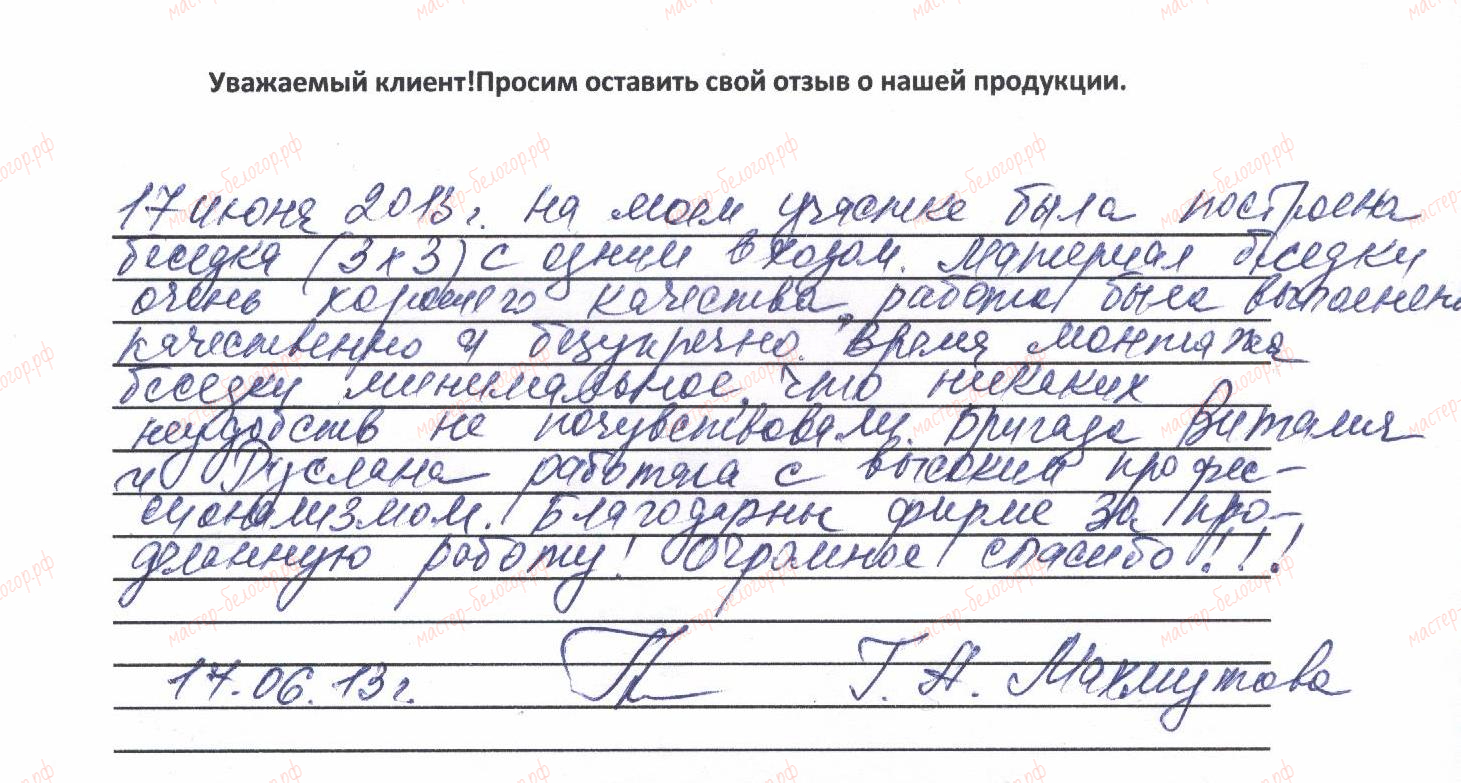 Уважаемый клиент!Просим оставить свой отзыв о нашей продукции.
17 июня 2013г. на моем участке была построена
беседка (3х3) с одним входом. Материал беседки
очень хорошего качества, работа была выполнена
качественно и безупречно. Время монтажа
беседки минимальное, что никаких
неудобств не почувствовали. Бригада Виталия
и Руслана работала с высоким профес-
сионализмом. Благодарны фирме за про-
деланную работу! Огромное спасибо!!!
17.06.13г. Г. А. Махмутова
мастер-белогор.рф